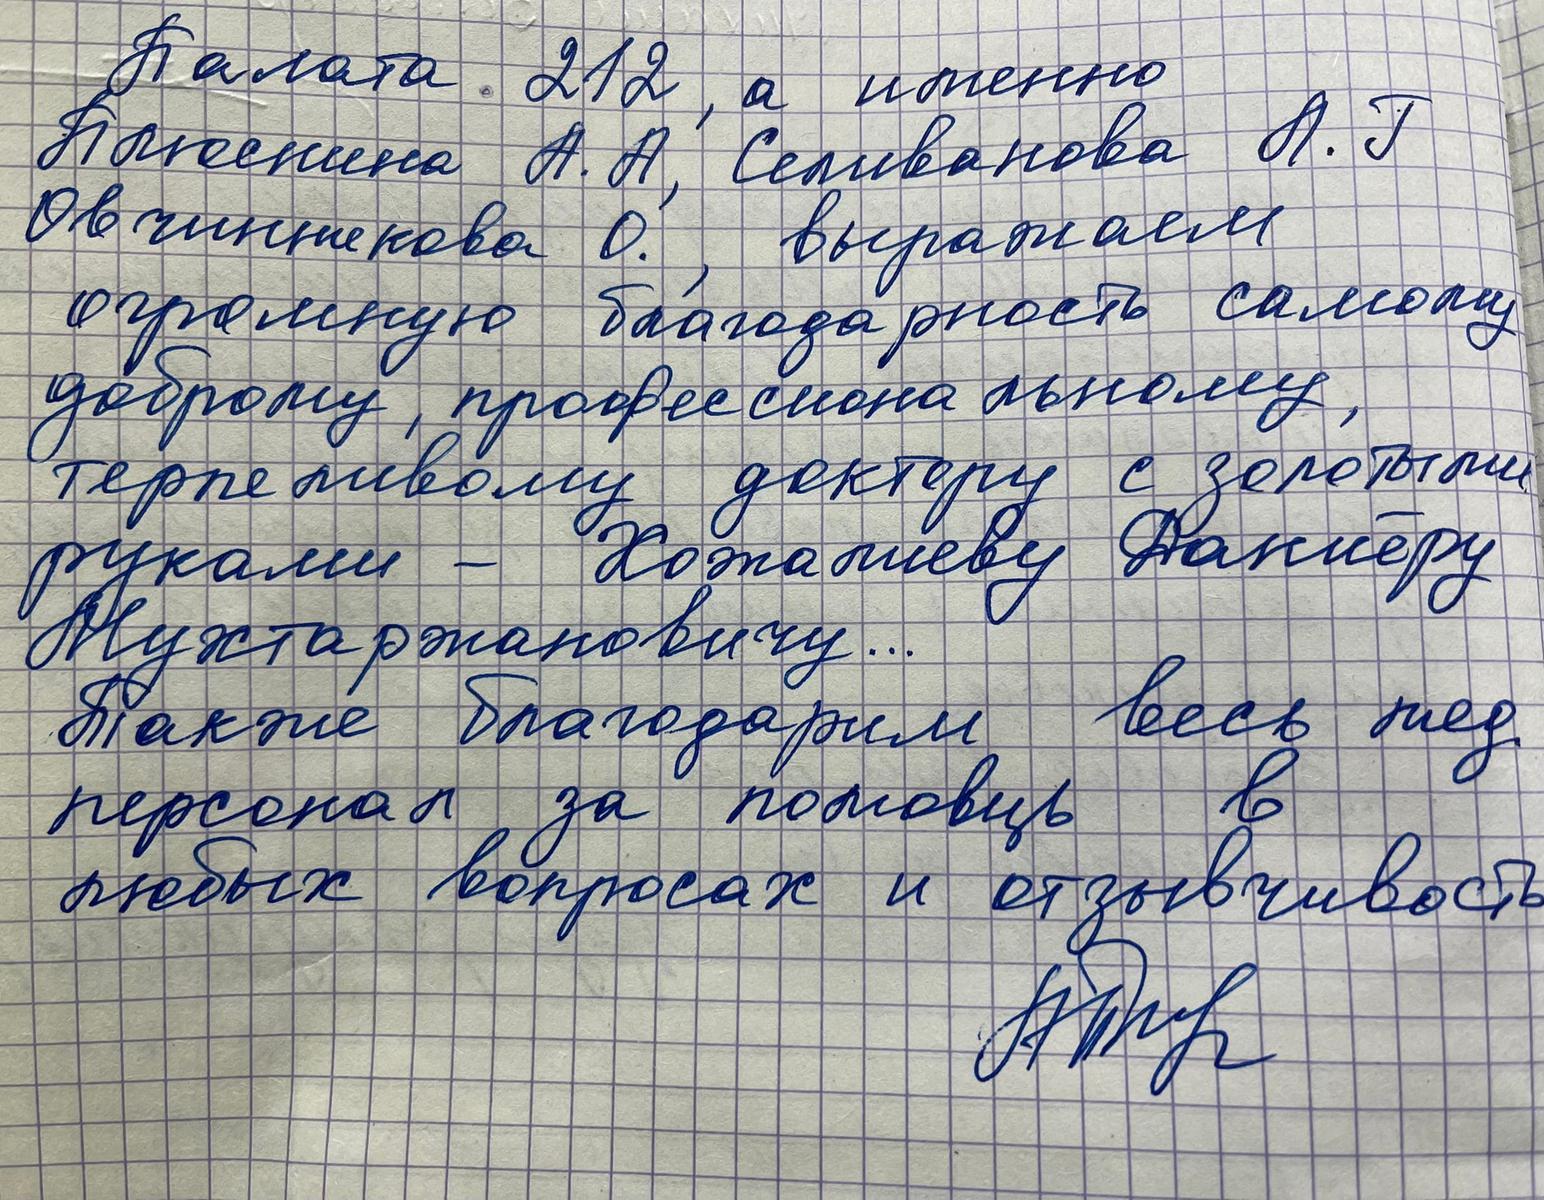 Палата 212, а именно
Плюснина А. А, Селиванова А. Г
Овчинникова О., выражаем
огромную благодарность самому
доброму, профессиональному,
терпеливому доктору с золотыми
руками – Хожалиеву Даниёру
Мухтаржановичу...
Также благодарим весь мед.
персонал за помовщь в
любых вопросах и отзывчивость